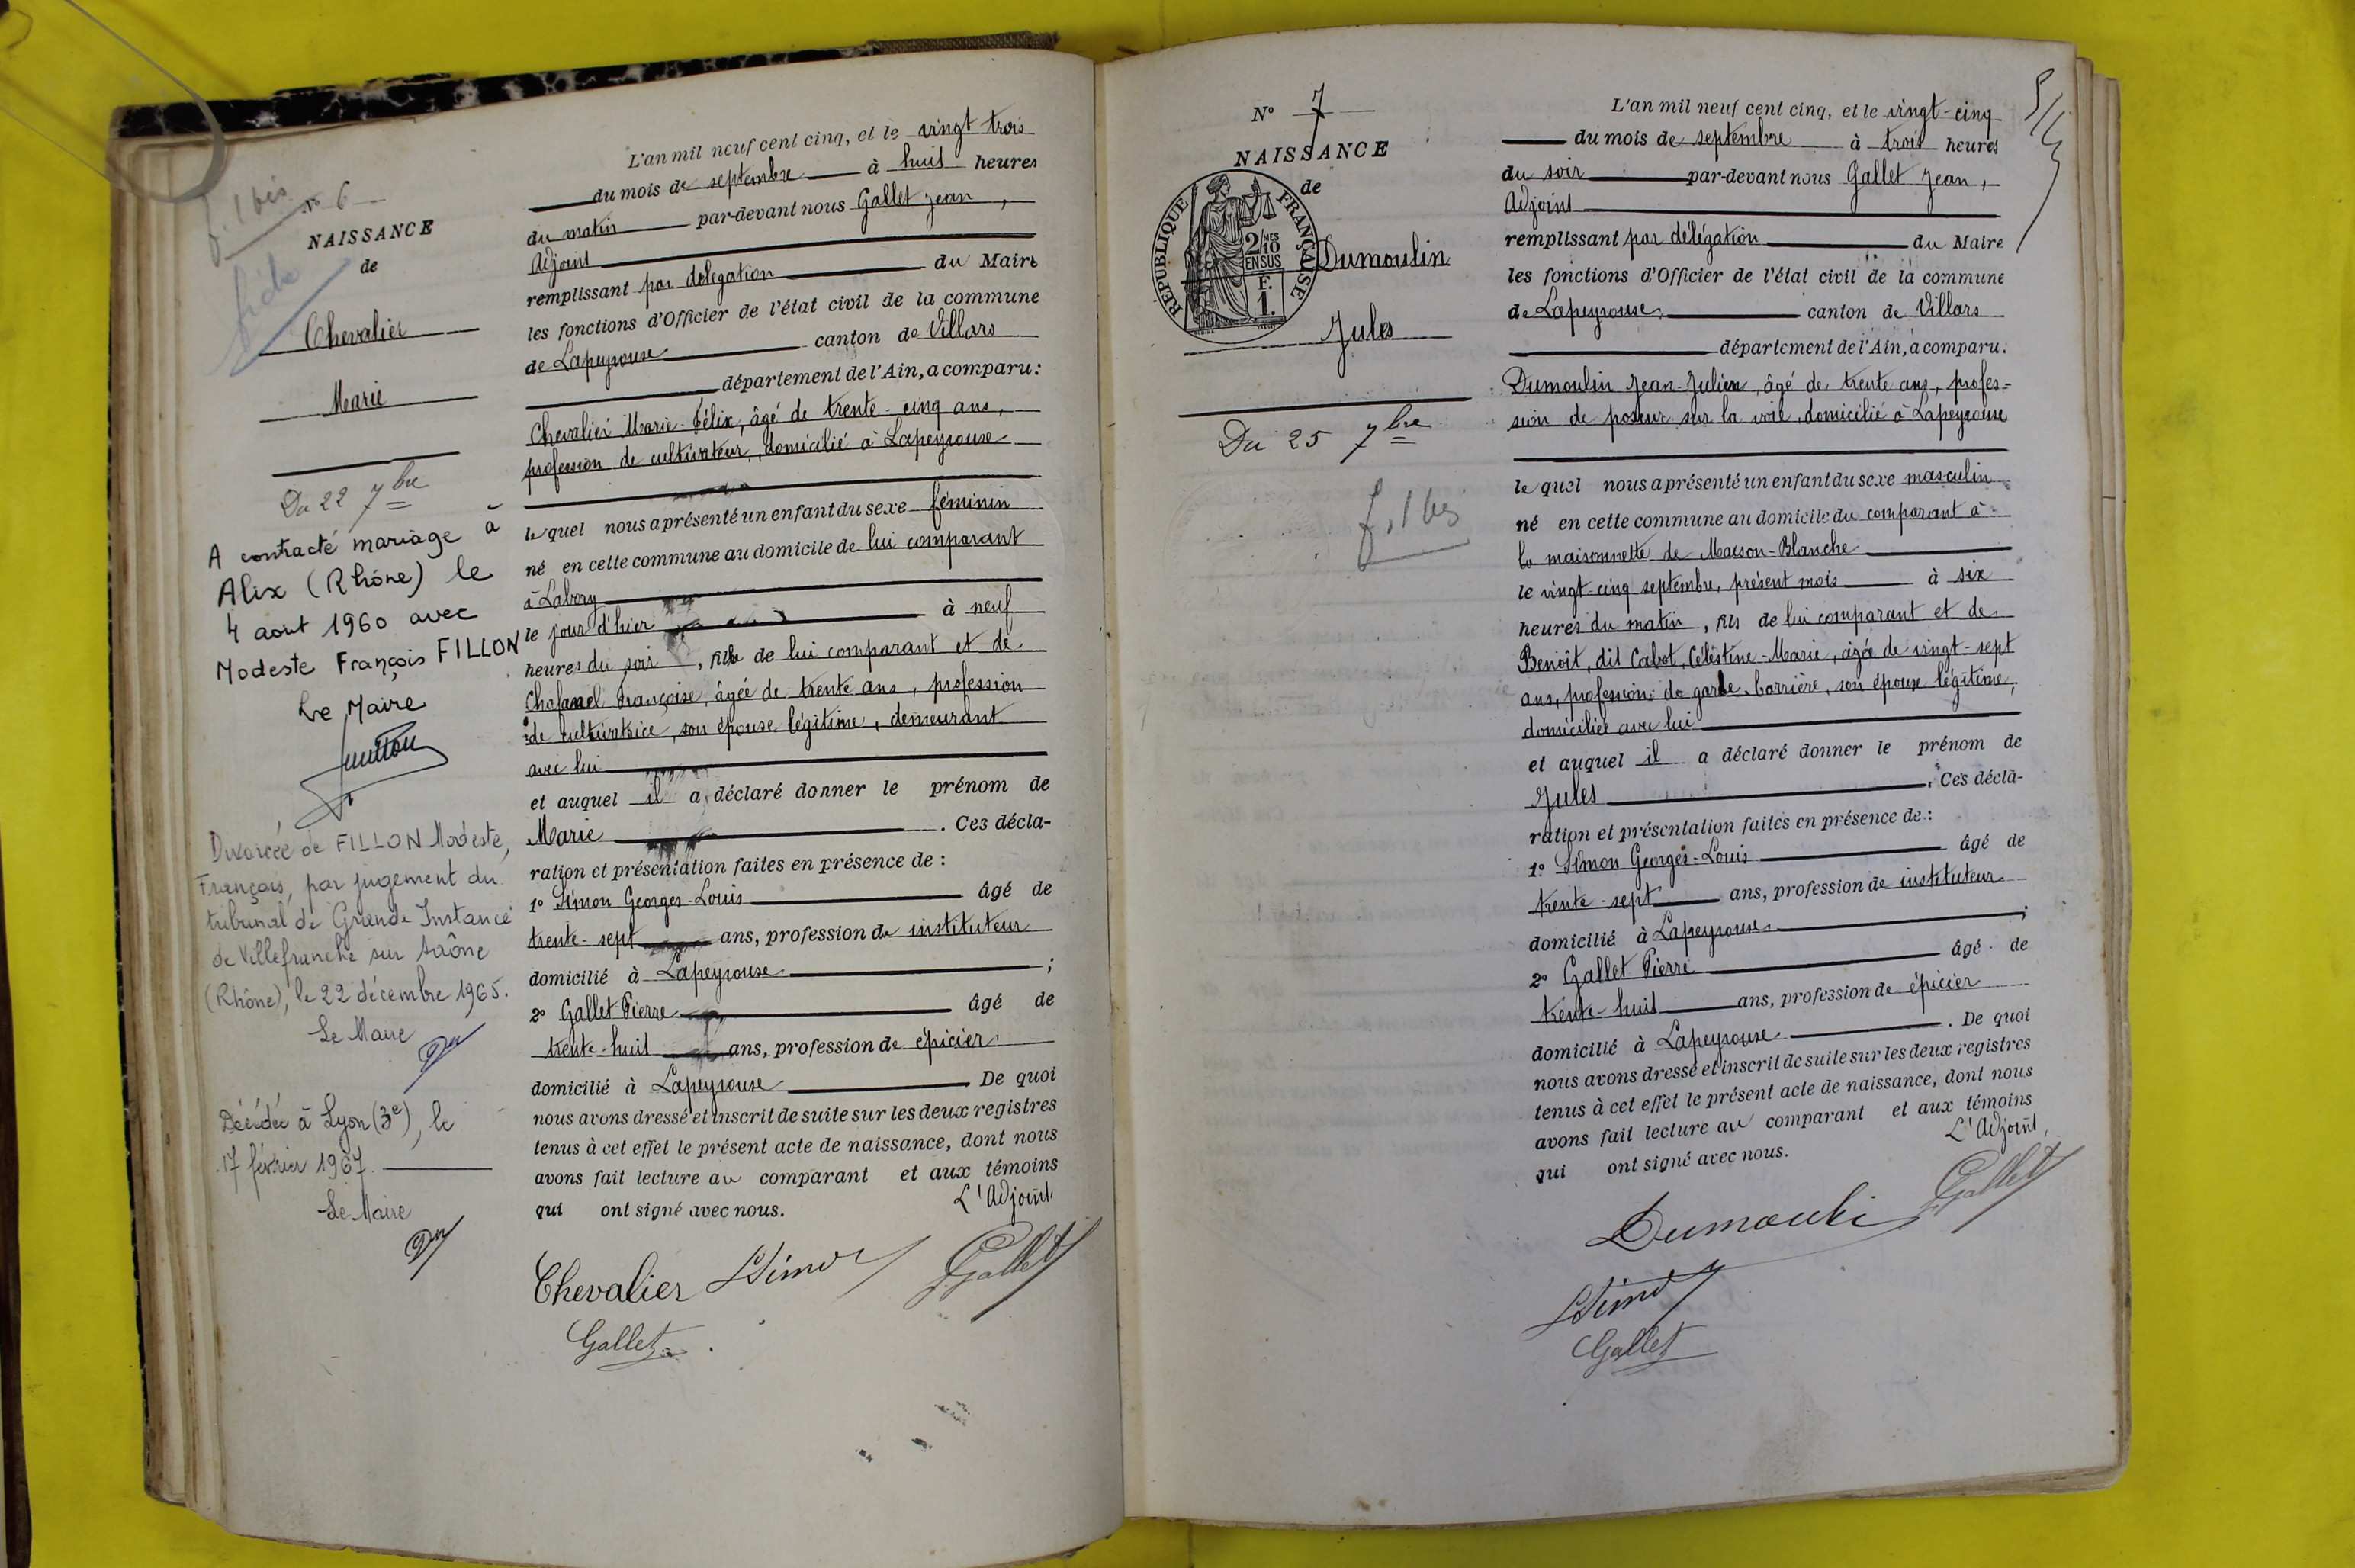 f. 1 bis
N° 6
NAISSANCE
de
Chevalier
Marie
Du 22 7bre
A contracté mariage à
Alix (Rhône) le
4 aout 1960 avec
Modeste François FILLON
Le Maire
Divorcée de FILLON Modeste,
François, par jugement du
tribunal de Grande Instance
de Villefranche sur Saône
(Rhône), le 22 décembre 1965.
Le Maire
Décédée à Lyon (3e), le
17 février 1967.
Le Maire
L'an mil neuf cent cinq, et le vingt trois
du mois de septembre à huit heures
du matin par-devant nous Gallet Jean,
Adjoint
remplissant par délégation du Maire
les fonctions d'Officier de l'état civil de la commune
de Lapeyrouse canton de Villars
département de l'Ain, a comparu :
Chevalier Marie-Félix, âgé de trente-cinq ans,
profession de cultivateur, domicilié à Lapeyrouse
lequel nous a présenté un enfant du sexe féminin
né en cette commune au domicile de lui comparant
à Labory
le jour d'hier à neuf
heures du soir, fille de lui comparant et de
Françoise, âgée de trente ans, profession
de cultivatrice, son épouse légitime, demeurant
avec lui
et auquel il a déclaré donner le prénom de
Marie. Ces décla-
ration et présentation faites en présence de :
1° Simon Georges-Louis âgé de
trente-sept ans, profession de instituteur
domicilié à Lapeyrouse ;
2° Gallet Pierre âgé de
trente-huit ans, profession de épicier
domicilié à Lapeyrouse De quoi
nous avons dressé et inscrit de suite sur les deux registres
tenus à cet effet le présent acte de naissance, dont nous
avons fait lecture au comparant et aux témoins
qui ont signé avec nous.
L'Adjoint
Chevalier Simon Gallet
Gallet
N° 7
NAISSANCE
de
RÉPUBLIQUE FRANÇAISE
2/10 MES
EN SUS
F.
1.
Dumoulin
Jules
Du 25 7bre
f. 1 bis
L'an mil neuf cent cinq, et le vingt-cinq
du mois de septembre à trois heures
du soir par-devant nous Gallet Jean,
Adjoint
remplissant par délégation du Maire
les fonctions d'Officier de l'état civil de la commune
de Lapeyrouse canton de Villars
département de l'Ain, a comparu.
Dumoulin Jean-Julien, âgé de trente ans, profes-
sion de poseur sur la voie, domicilié à Lapeyrouse
lequel nous a présenté un enfant du sexe masculin
né en cette commune au domicile du comparant à
la maisonnette de Maison-Blanche
le vingt-cinq septembre, présent mois à six
heures du matin, fils de lui comparant et de
Benoît, dit Cabot, Célestine-Marie, âgée de vingt-sept
ans, profession de garde-barrière, son épouse légitime,
domiciliée avec lui
et auquel il a déclaré donner le prénom de
Jules. Ces décla-
ration et présentation faites en présence de :
1° Simon Georges-Louis âgé de
trente-sept ans, profession de instituteur
domicilié à Lapeyrouse ;
2° Gallet Pierre âgé de
trente-huit ans, profession de épicier
domicilié à Lapeyrouse. De quoi
nous avons dressé et inscrit de suite sur les deux registres
tenus à cet effet le présent acte de naissance, dont nous
avons fait lecture au comparant et aux témoins
qui ont signé avec nous.
L'Adjoint,
Dumoulin Gallet
Simon
Gallet